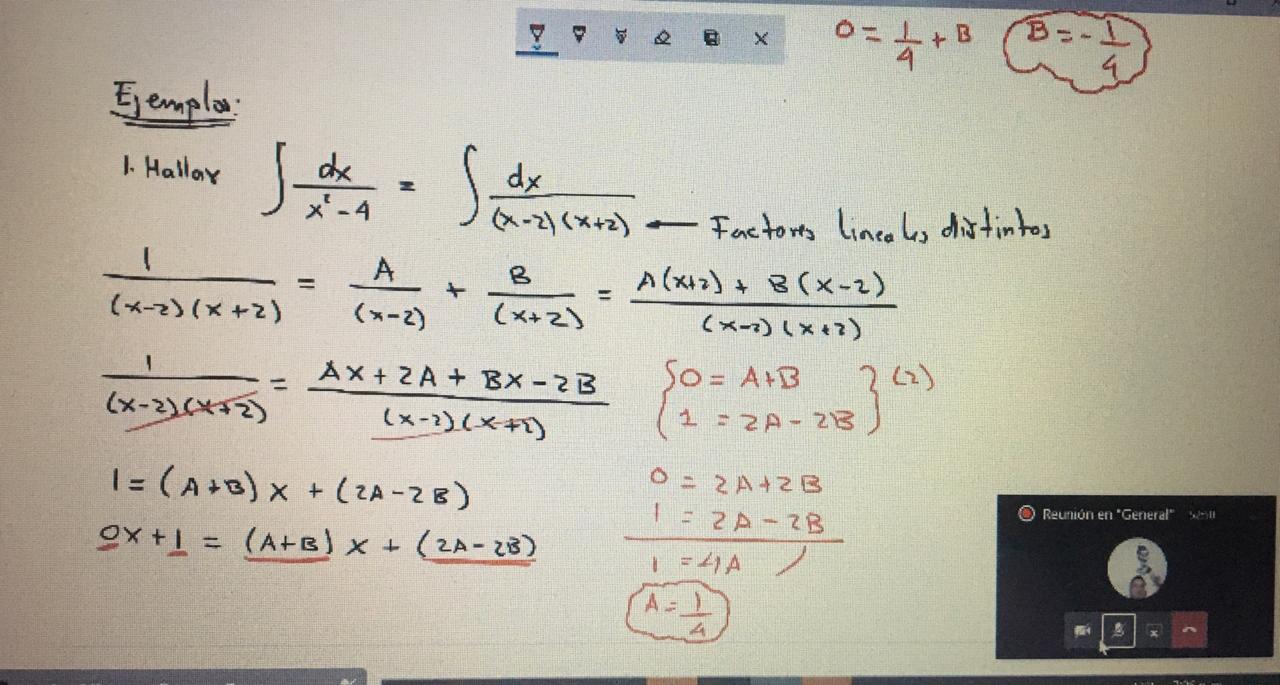 0 = 1/4 + B    B = - 1/4
Ejemplos:
1. Hallar ∫ dx/(x² - 4) = ∫ dx/((x-2)(x+2)) ← Factores lineales distintos
1/((x-2)(x+2)) = A/(x-2) + B/(x+2) = (A(x+2) + B(x-2))/((x-2)(x+2))
1/((x-2)(x+2)) = (Ax + 2A + Bx - 2B)/((x-2)(x+2))
{ 0 = A+B
1 = 2A - 2B } (2)
1 = (A+B)x + (2A-2B)
0x + 1 = (A+B)x + (2A-2B)
0 = 2A+2B
1 = 2A - 2B
1 = 4A
A = 1/4
Reunión en "General"